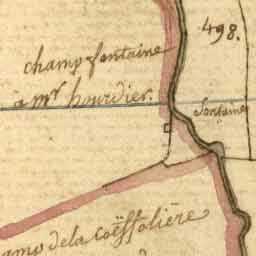 498.
champ fontaine
à mr. hourdier.
fontaine
amp de la Coëffolière